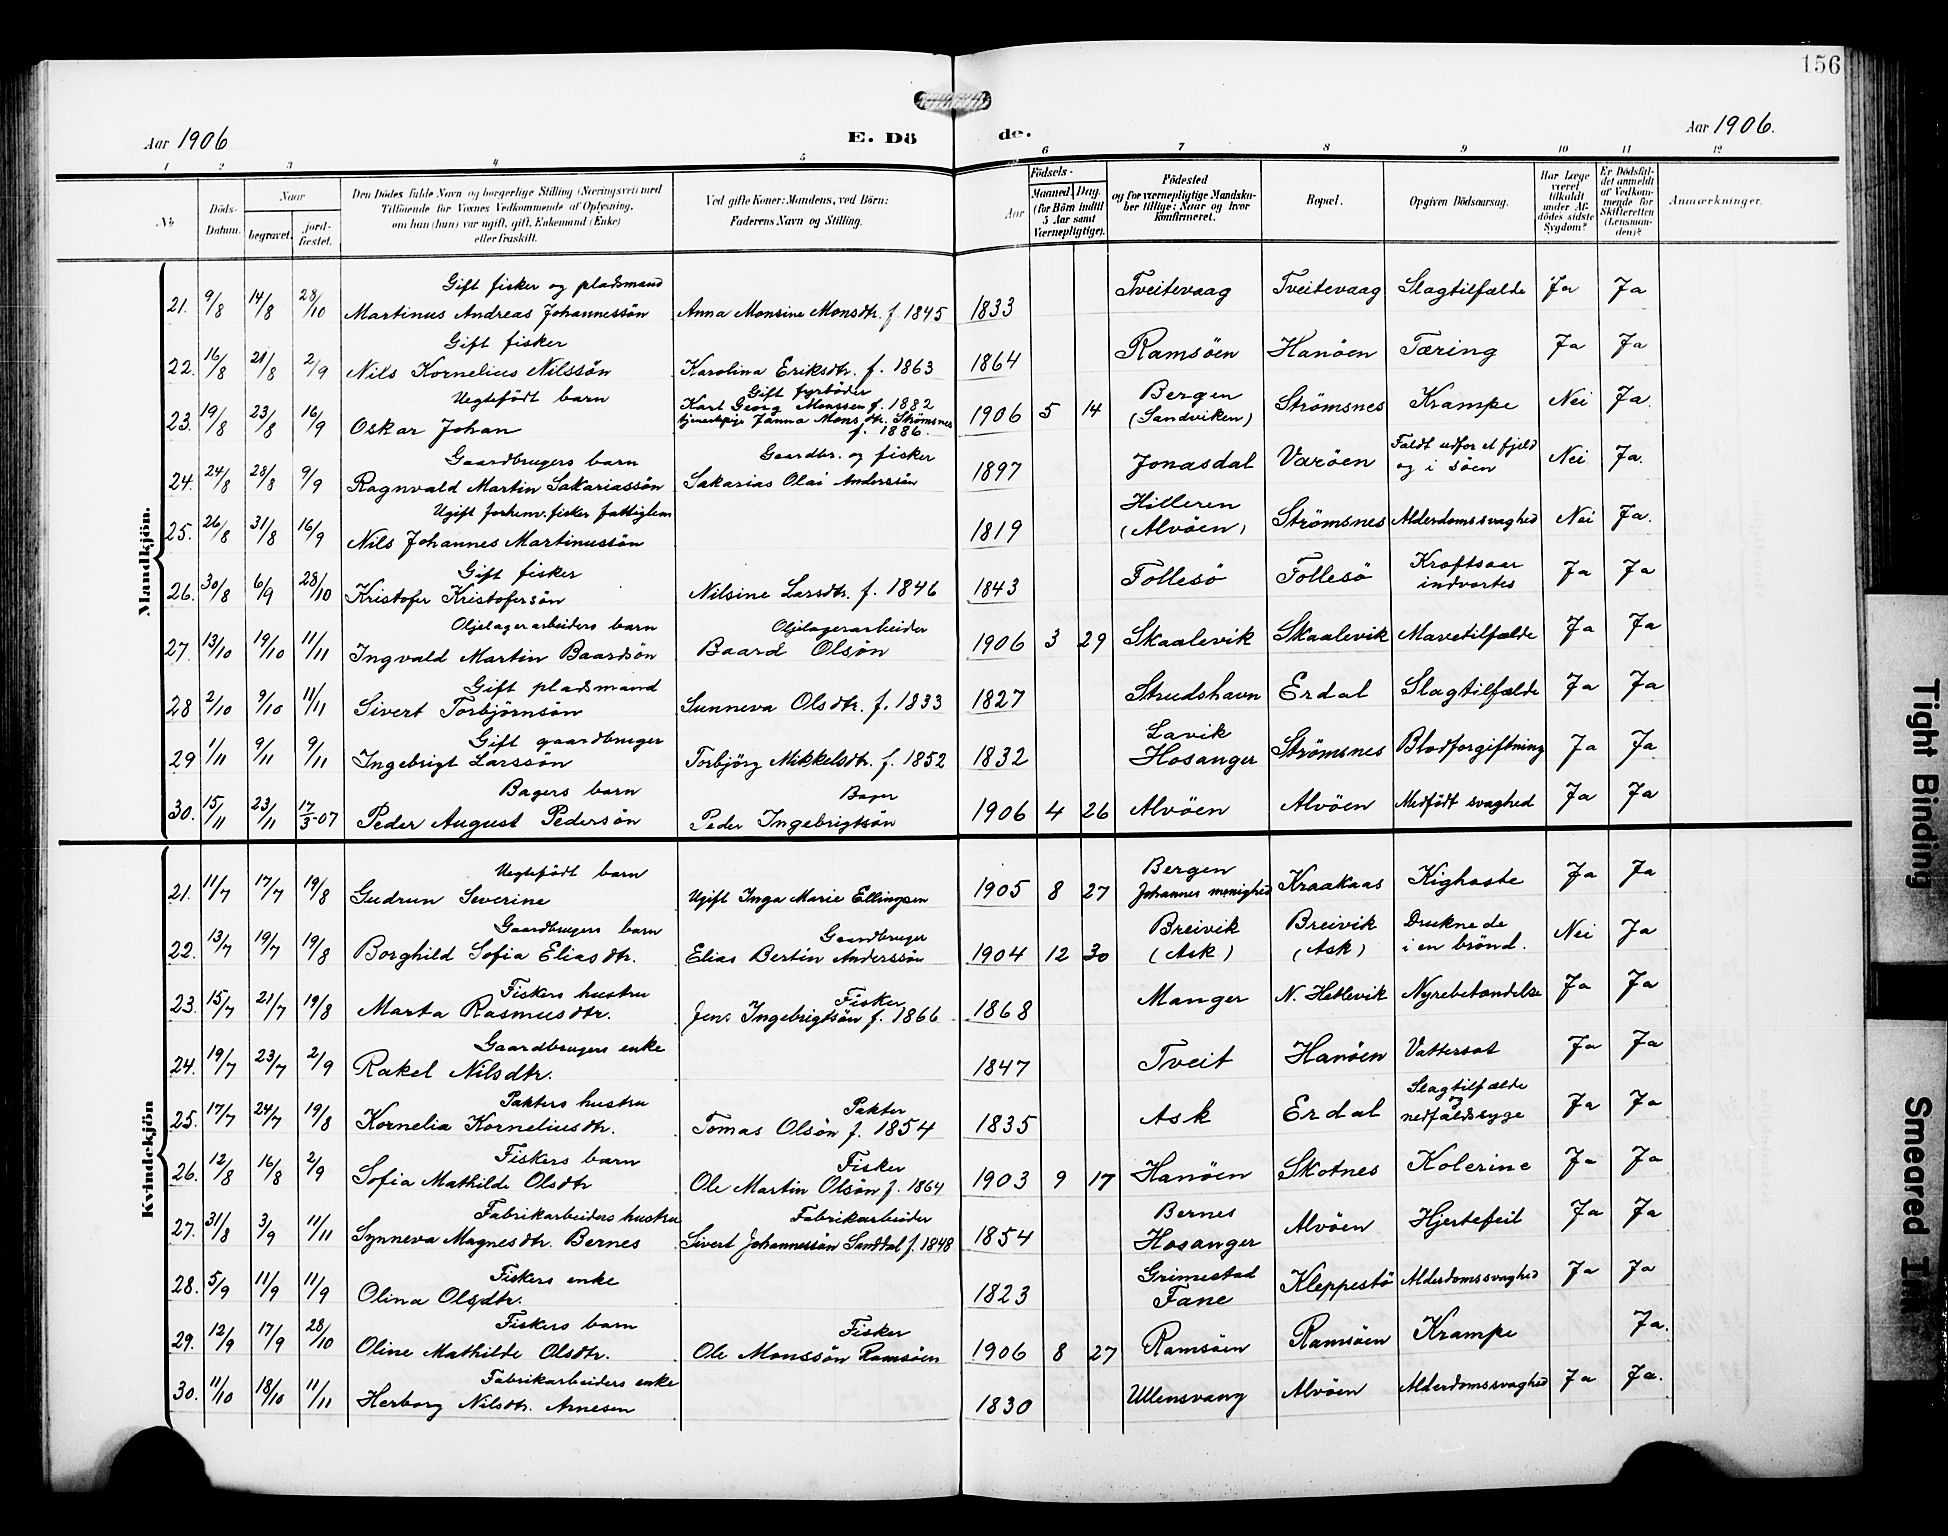 156
Aar 1906
E. Dö
de.
Aar 1906.
1 2 3 4 5 6 7 8 9 10 11 12
No
Döds-Datum.
Naar
begravet.
jord-fæstet.
Den Dödes fulde Navn og borgerlige Stilling (Næringsvei) med
Tilföiende for Voxnes Vedkommende af Oplysning,
om han (hun) var ugift, gift, Enkemand (Enke)
eller fraskilt.
Ved gifte Koner: Mandens, ved Börn:
Faderens Navn og Stilling.
Födsels-
Aar
Maaned. Dag.
(for Börn indtil
5 Aar samt
Værnepligtige).
Födested
og for værnepligtige Mandska-
ber tillige: Naar og hvor
konfirmeret.
Bopæl.
Opgiven Dödsaarsag.
Har Læge
været
tilkaldt
under Af-
dödes sidste
Sygdom?
Er Dödsfal-
det anmeldt
af Vedkom-
mende for
Skifteretten
(Lensman-
den)?
Anmærkninger.
Mandkjön.
Gift fisker og pladsmand
21. 9/8 14/8 28/10 Martinus Andreas Johannessön Anna Monsine Monsdtr. f. 1845 1833 Tveitevaag Tveitevaag Slagtilfælde Ja Ja
Gift fisker
22. 16/8 21/8 2/9 Nils Kornelius Nilssön Karolina Eriksdtr. f. 1863 1864 Ramsöen Hanöen Tæring Ja Ja
Uegtefödt barn Gift fyrböder
Karl Georg Monssen f. 1882 Bergen
23. 19/8 23/8 16/9 Oskar Johan tjenestepige Janna Mons.dtr. Strömsnes f. 1886. 1906 5 14 (Sandviken) Strömsnes Krampe Nei Ja.
Gaardbrugers barn Gaardbr. og fisker Faldt udfor et fjeld
24. 24/8 28/8 9/9 Ragnvald Martin Sakariassön Sakarias Olai Anderssön 1897 Jonasdal Varöen og i söen Nei Ja.
Ugift forhenv. fisker fattiglem Hilleren
25. 26/8 31/8 16/9 Nils Johannes Martinussön 1819 (Alvöen) Strömsnes Alderdomssvaghed Nei Ja.
Gift fisker Kræftsaar
26. 30/8 6/9 28/10 Kristofer Kristofersön Nilsine Larsdtr. f. 1846 1843 Follesö Follesö indvortes Ja Ja
Oljelagerarbeiders barn Oljelagerarbeider
27. 13/10 19/10 11/11 Ingvald Martin Baardsön Baard Olsön 1906 3 29 Skaalevik Skaalevik Mavetilfælde Ja Ja
Gift pladsmand
28 2/10 9/10 11/11 Sivert Torbjörnsön Sunneva Olsdtr. f. 1833 1827 Strudshavn Erdal Slagtilfælde Ja Ja
Gift gaardbruger Lavik
29 1/11 9/11 9/11 Ingebrigt Larssön Torbjörg Mikkelsdtr. f. 1852 1832 Hosanger Strömsnes Blodforgiftning Ja Ja
Bagers barn Bager
30. 15/11 23/11 17/3-07 Peder August Pedersön Peder Ingebrigtsön 1906 4 26 Alvöen Alvöen Medfödt svaghed Ja Ja
Kvindekjön
Uegtefödt barn Bergen
21. 11/7 17/7 19/8 Gudrun Severine Ugift Inga Marie Ellingsen 1905 8 27 Johannes menighed Kraakaas Kighoste Ja Ja
Gaardbrugers barn Gaardbruger Breivik Breivik Druknede
22. 13/7 19/7 19/8 Borghild Sofia Eliasdtr. Elias Bertin Anderssön 1904 12 30 (Ask) (Ask) i en brönd. Nei Ja
Fiskers hustru Fisker
23. 15/7 21/7 19/8 Marta Rasmusdtr. Jens Ingebrigtsön f. 1866 1868 Manger N. Hetlevik Nyrebetændelse Ja Ja
Gaardbrugers enke
24. 19/7 23/7 2/9 Rakel Nilsdtr. 1847 Tveit Hanöen Vattersot Ja Ja
Pakters hustru Pakter Slagtilfælde
25. 17/7 24/7 19/8 Kornelia Korneliusdtr. Tomas Olsön f. 1854 1835 Ask Erdal og nedfaldssyge Ja Ja
Fiskers barn Fisker
26. 12/8 16/8 2/9 Sofia Mathilde Olsdtr Ole Martin Olsön f. 1864 1903 9 17 Hanöen Skotnes Kolerine Ja Ja
Fabrikarbeiders hustru Fabrikarbeider Bernes
27. 31/8 3/9 11/11 Synneva Magnesdtr. Bernes Sivert Johannessön Sanddal f. 1848 1854 Hosanger Alvöen Hjertefeil Ja Ja
Fiskers enke Grimestad
28. 5/9 11/9 11/9 Olina Olsdtr. 1823 Fane Kleppestö Alderdomssvaghed Ja Ja
Fiskers barn Fisker
29. 12/9 17/9 28/10 Oline Mathilde Olsdtr. Ole Monssön Ramsöen 1906 8 27 Ramsöen Ramsöen Krampe Ja.
Fabrikarbeiders enke
30. 11/10 18/10 11/11 Herborg Nilsdtr. Arnesen 1830 Ullensvang Alvöen Alderdomssvaghed Ja Ja.
Tight Binding
Smeared Ink